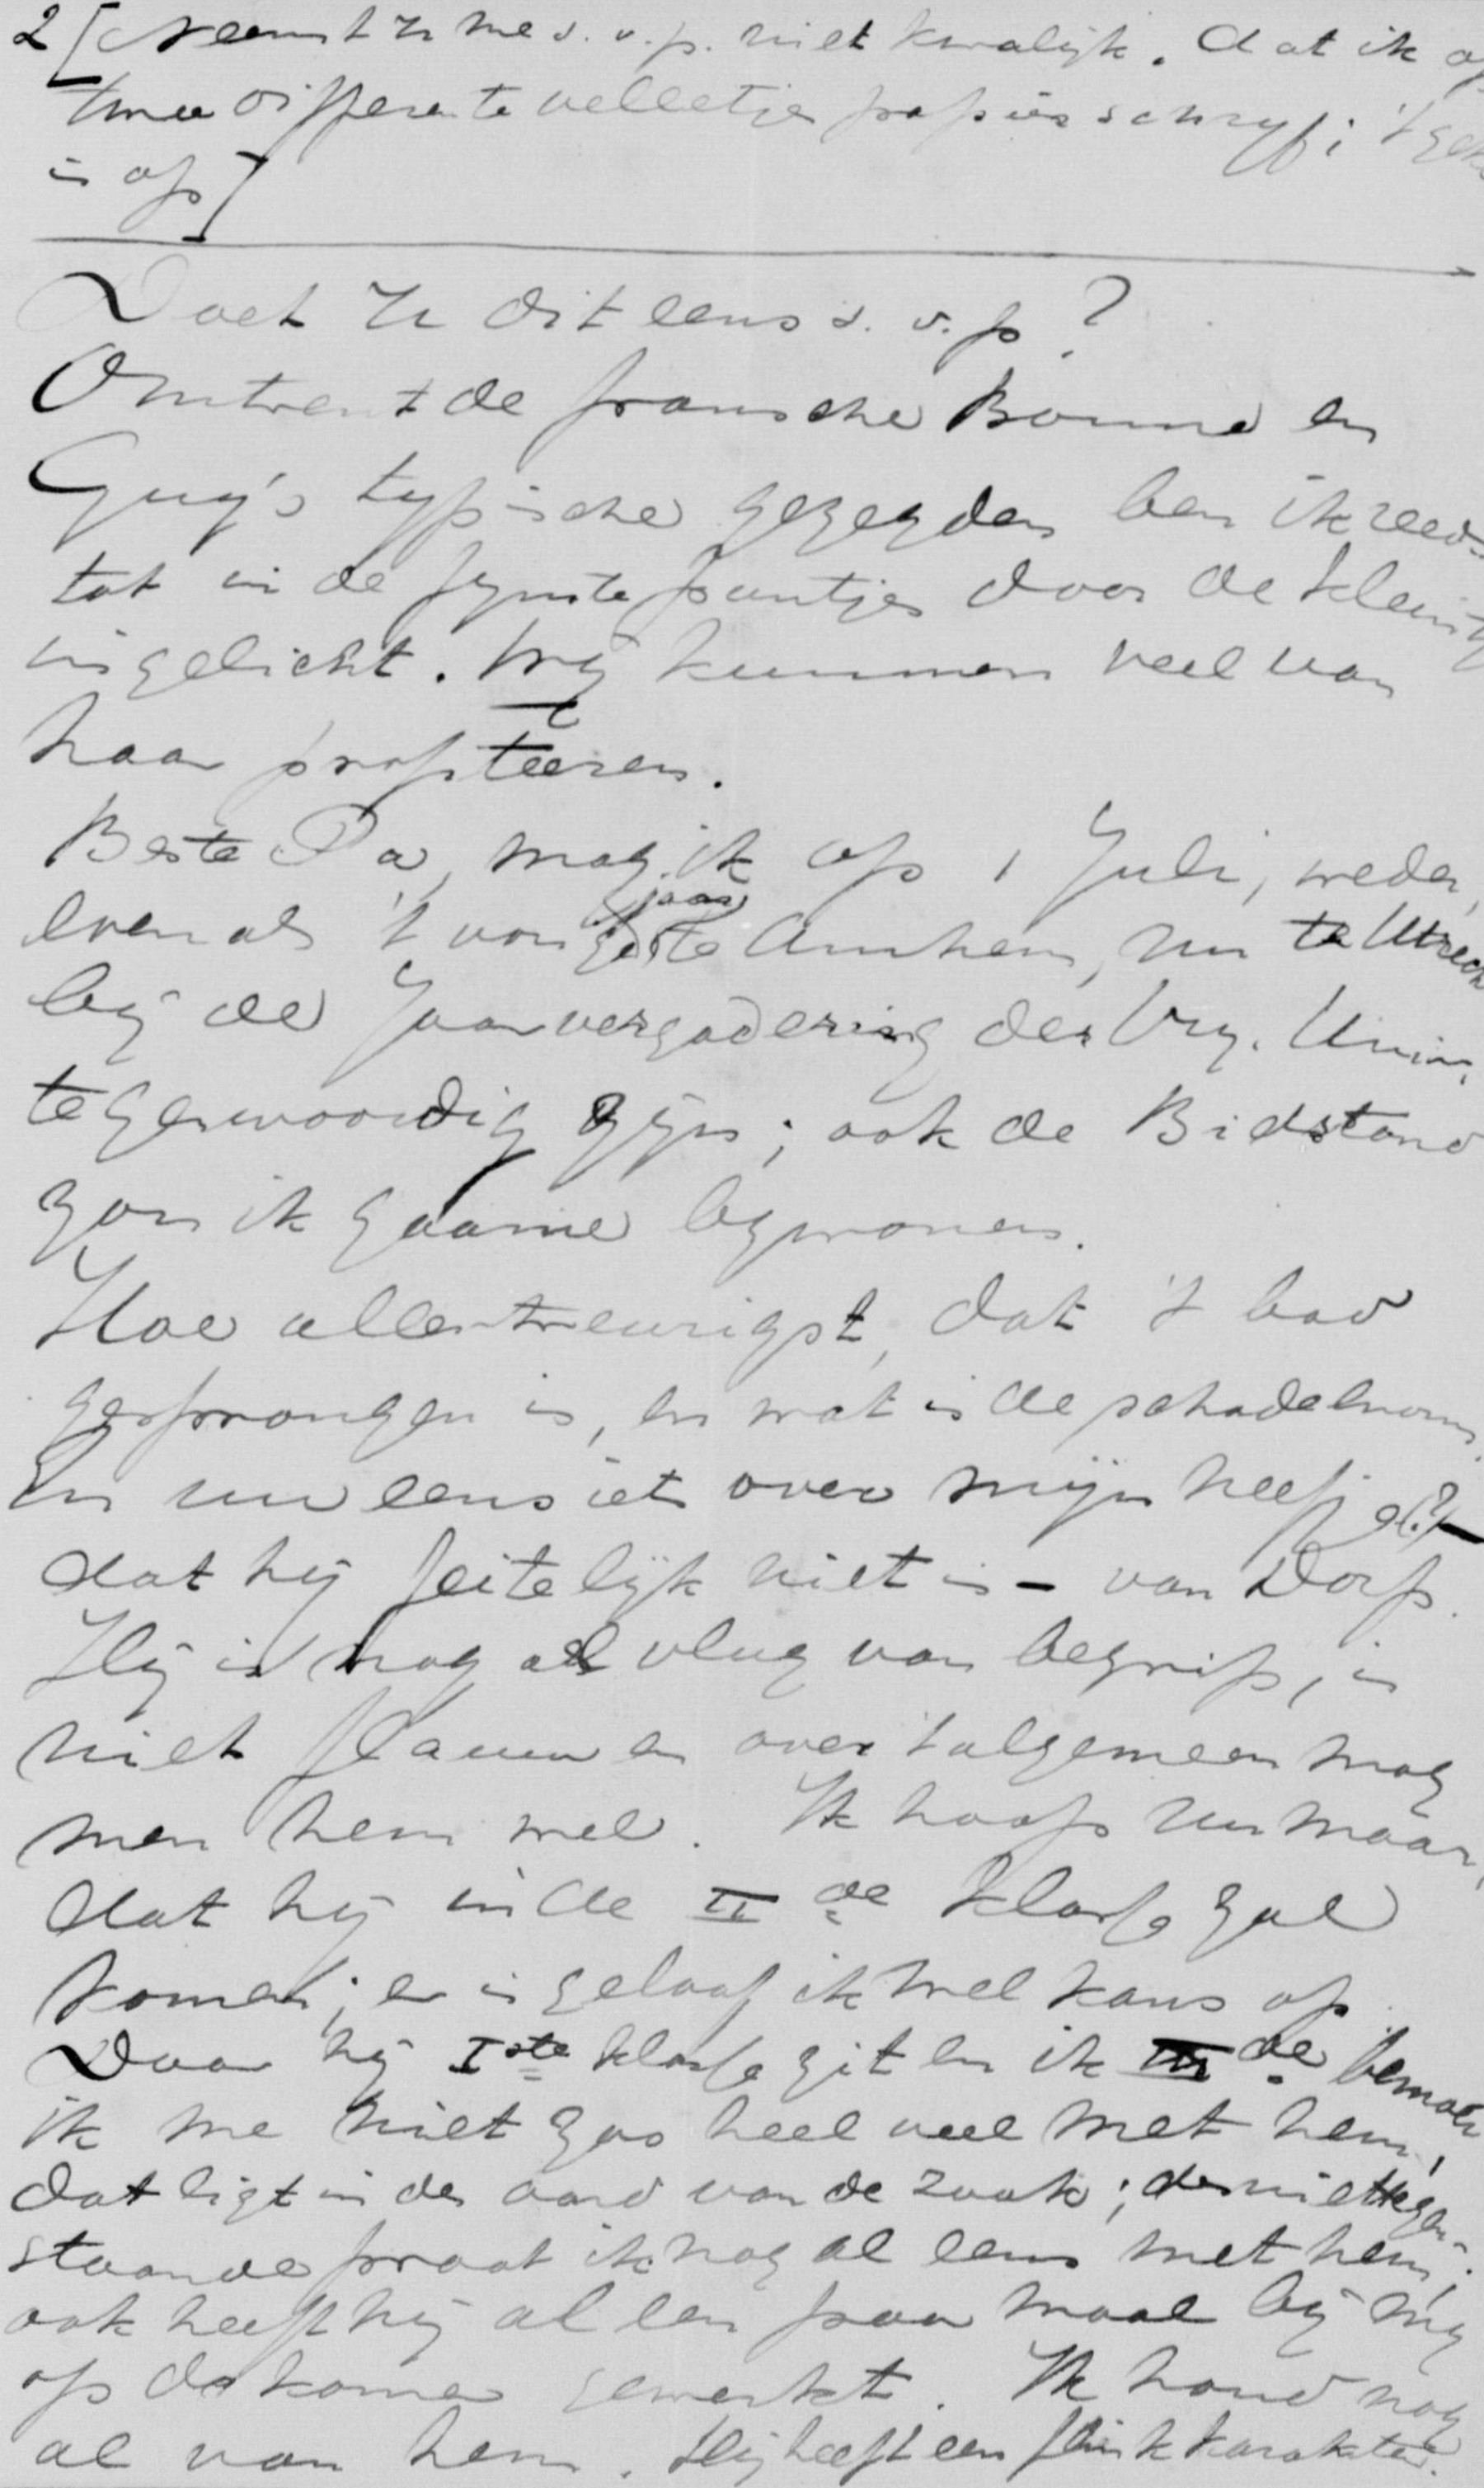 2 [Neemt U me s.v.p. niet kwalijk. dat ik op
twee differente velletjes papier schryf; 't
is op]
Doet U dit eens s.v.p?
Omtrent de fransche Bonne en
Guy's typische gezegden ben ik reeds
tot in de fynste puntjes door de klein
ingelicht. Wy kunnen veel van
haar profiteeren.
Beste Pa, mag ik op 1 Juli, weder,
evenals 't vorige jaar te Arnhem, nu te Utrech
by de Jaarvergadering der Vry. Univ.
tegenwoordig zyn; ook de Bidstond
zou ik gaarne bywonen.
Hoe allertreurigst, dat 't bad
gesprongen is, en wat is de schade enorm.
En nu eens iets over mijn neef je(?)-
dat hij feitelijk niet is - van Dorp.
Hij is nog al vlug van begrip, is
niet flauw en over 't algemeen mag
men hem wel. Ik hoop nu maar,
dat hij in de II de klasse zal
komen; er is geloof ik wel kans op.
Daar hij Iste klasse zit en ik III de bemoei
ik me niet zoo heel veel met hem;
dat ligt in den aard van de zaak; desniettegen-
staande praat ik nog al eens met hem;
ook heeft hij al een paar maal bij mij
op de kamer gewerkt. Ik houd nog
al van hem. Hij heeft een flink karakter.